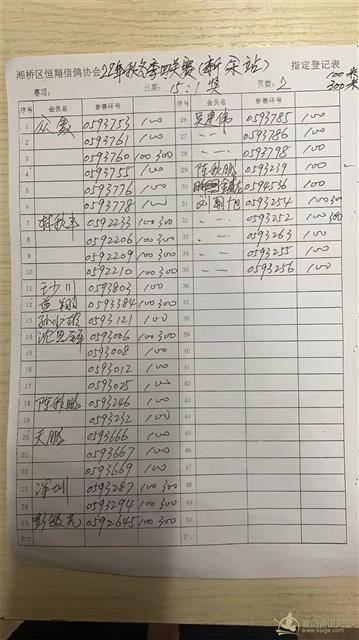 湘桥区恒翔信鸽协会22年秋冬季四关赛(新余站) 指定登记表
100米
300米
赛项: 日期: 15:1奖 页数: 2
序号 会员名 参赛环号 序号 会员名 参赛环号
1 0593753 100 26 0593785 100
2 0593761 100 27 0593786 100
3 0593760 100 300 28 0593798 100
4 0593755 100 29 陈秋鹏 0593239 100
5 0593776 100 30 0594536 100
6 0593778 100 31 0593254 100 300
7 0592233 100 300 32 0593252 100 300
8 0592206 100 300 33 0593263 100
9 0592209 100 300 34 0593255 100
10 0592210 100 300 35 0593256 100
11 0593803 100 36
12 益翔 0593384 100 300 37
13 0593121 100 38
14 0593006 100 300 39
15 0593008 100 40
16 0593012 100 41
17 0593025 100 42
18 陈秋鹏 0593246 100 43
19 0593232 100 44
20 天鹏 0593666 100 45
21 0593667 100 46
22 0593669 100 47
23 深圳 0593287 100 300 48
24 0593294 100 300 49
25 彭敏光 0592645 100 300 50
合计: 合计: